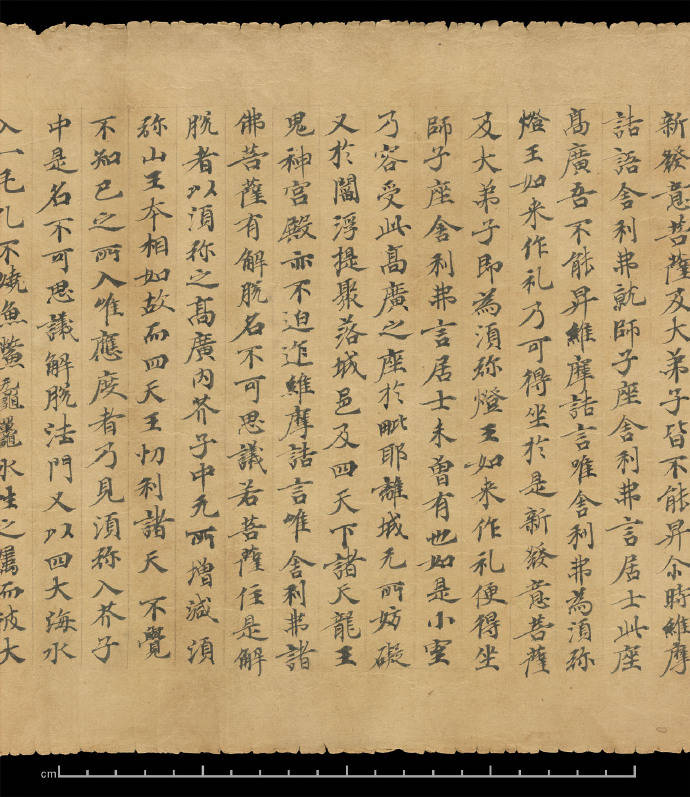 新發意菩薩及大弟子皆不能昇尒時維摩
詰語舍利弗就師子座舍利弗言居士此座
髙廣吾不能昇維摩詰言唯舍利弗為須弥
燈王如来作礼乃可得坐於是新發意菩薩
及大弟子即為須弥燈王如来作礼便得坐
師子座舍利弗言居士未曾有也如是小室
乃容受此髙廣之座於毗耶離城无所妨礙
又於閻浮提聚落城邑及四天下諸天龍王
鬼神宮殿亦不迫迮維摩詰言唯舍利弗諸
佛菩薩有解脫名不可思議若菩薩住是解
脫者以須弥之髙廣內芥子中无所增減須
弥山王本相如故而四天王忉利諸天不覺
不知己之所入唯應度者乃見須弥入芥子
中是名不可思議解脫法門又以四大海水
入一毛孔不嬈魚鱉黿鼉水性之屬而彼大